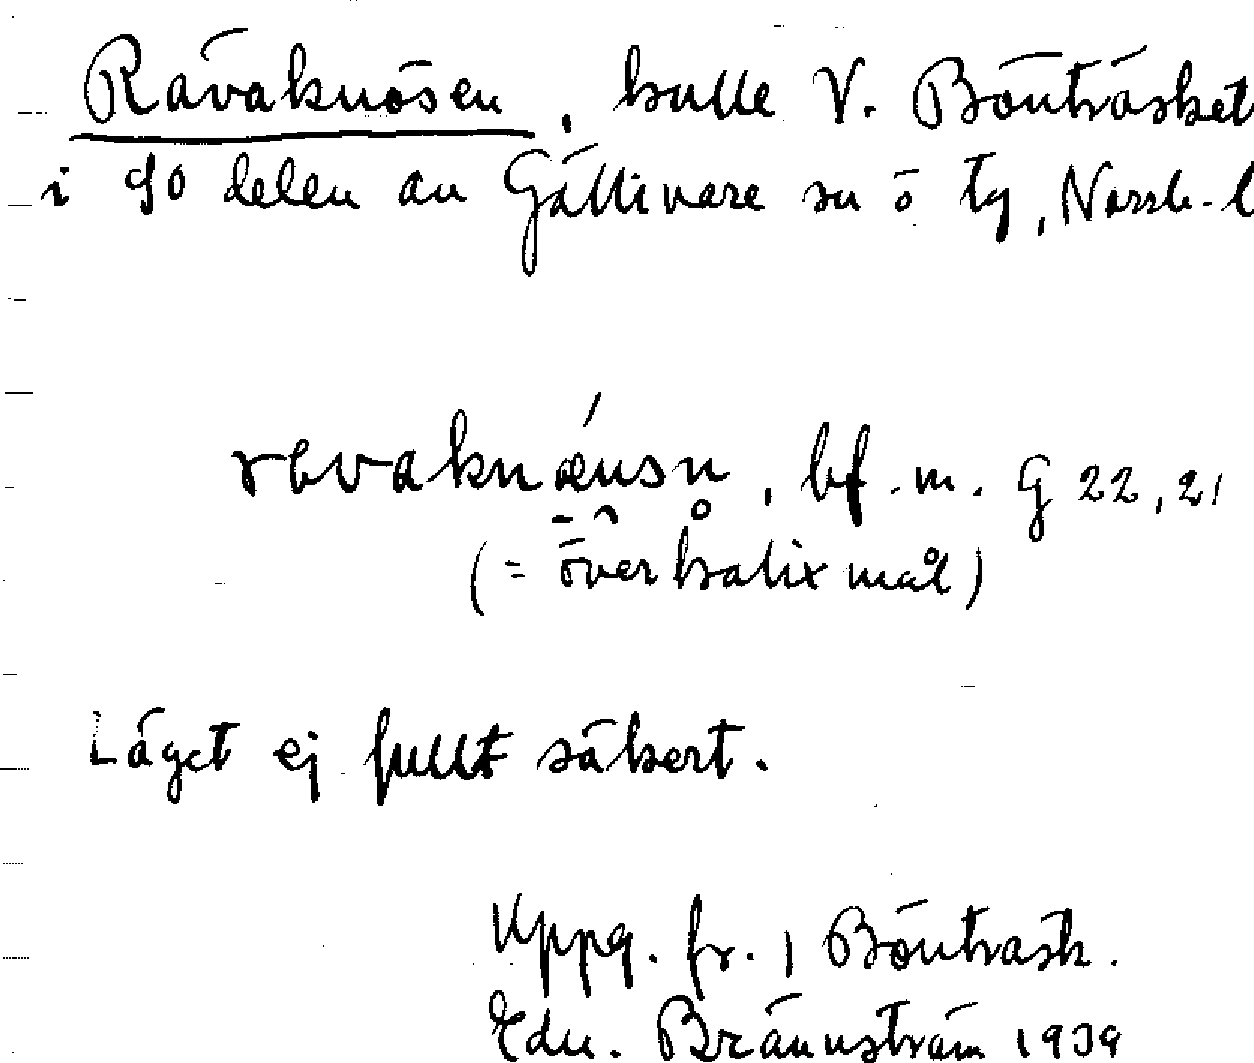 Rävaknösen, kulle V. Bönträsket
i SO delen av Gällivare sn o tg, Norrb. l
revaknæusn, bf. m. G 22, 21
(= överkalixmål)
Läget ej fullt säkert.
Uppg. fr. 1 Bönträsk.
Edv. Brännström 1939